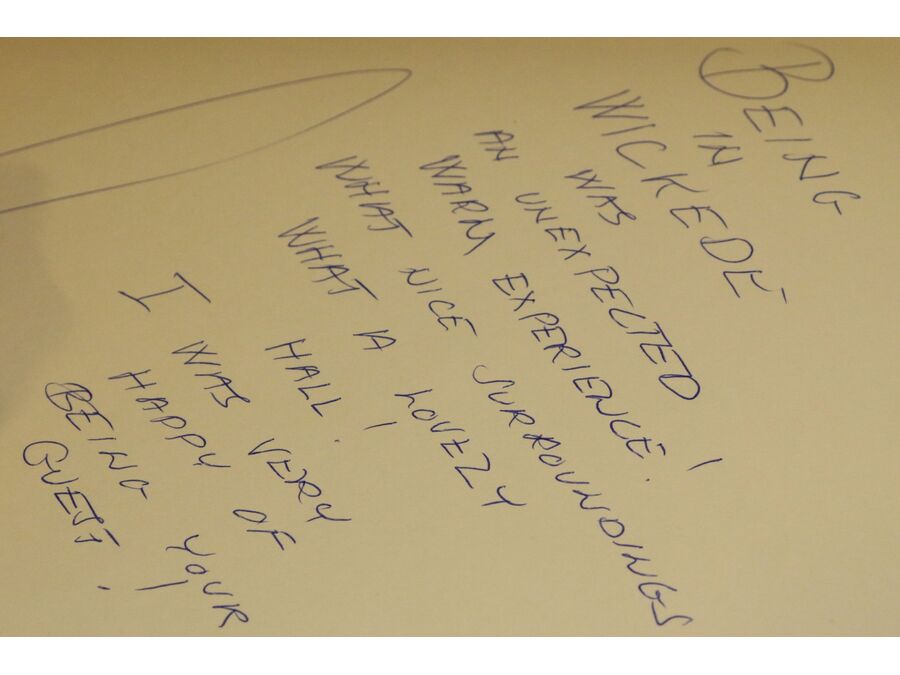 BEING
IN
WICKEDÉ
WAS
AN UNEXPECTED
WARM EXPERIENCE!
WHAT NICE SURROUNDINGS
WHAT A LOVELY
HALL!
I WAS VERY
HAPPY OF
BEING YOUR
GUEST!